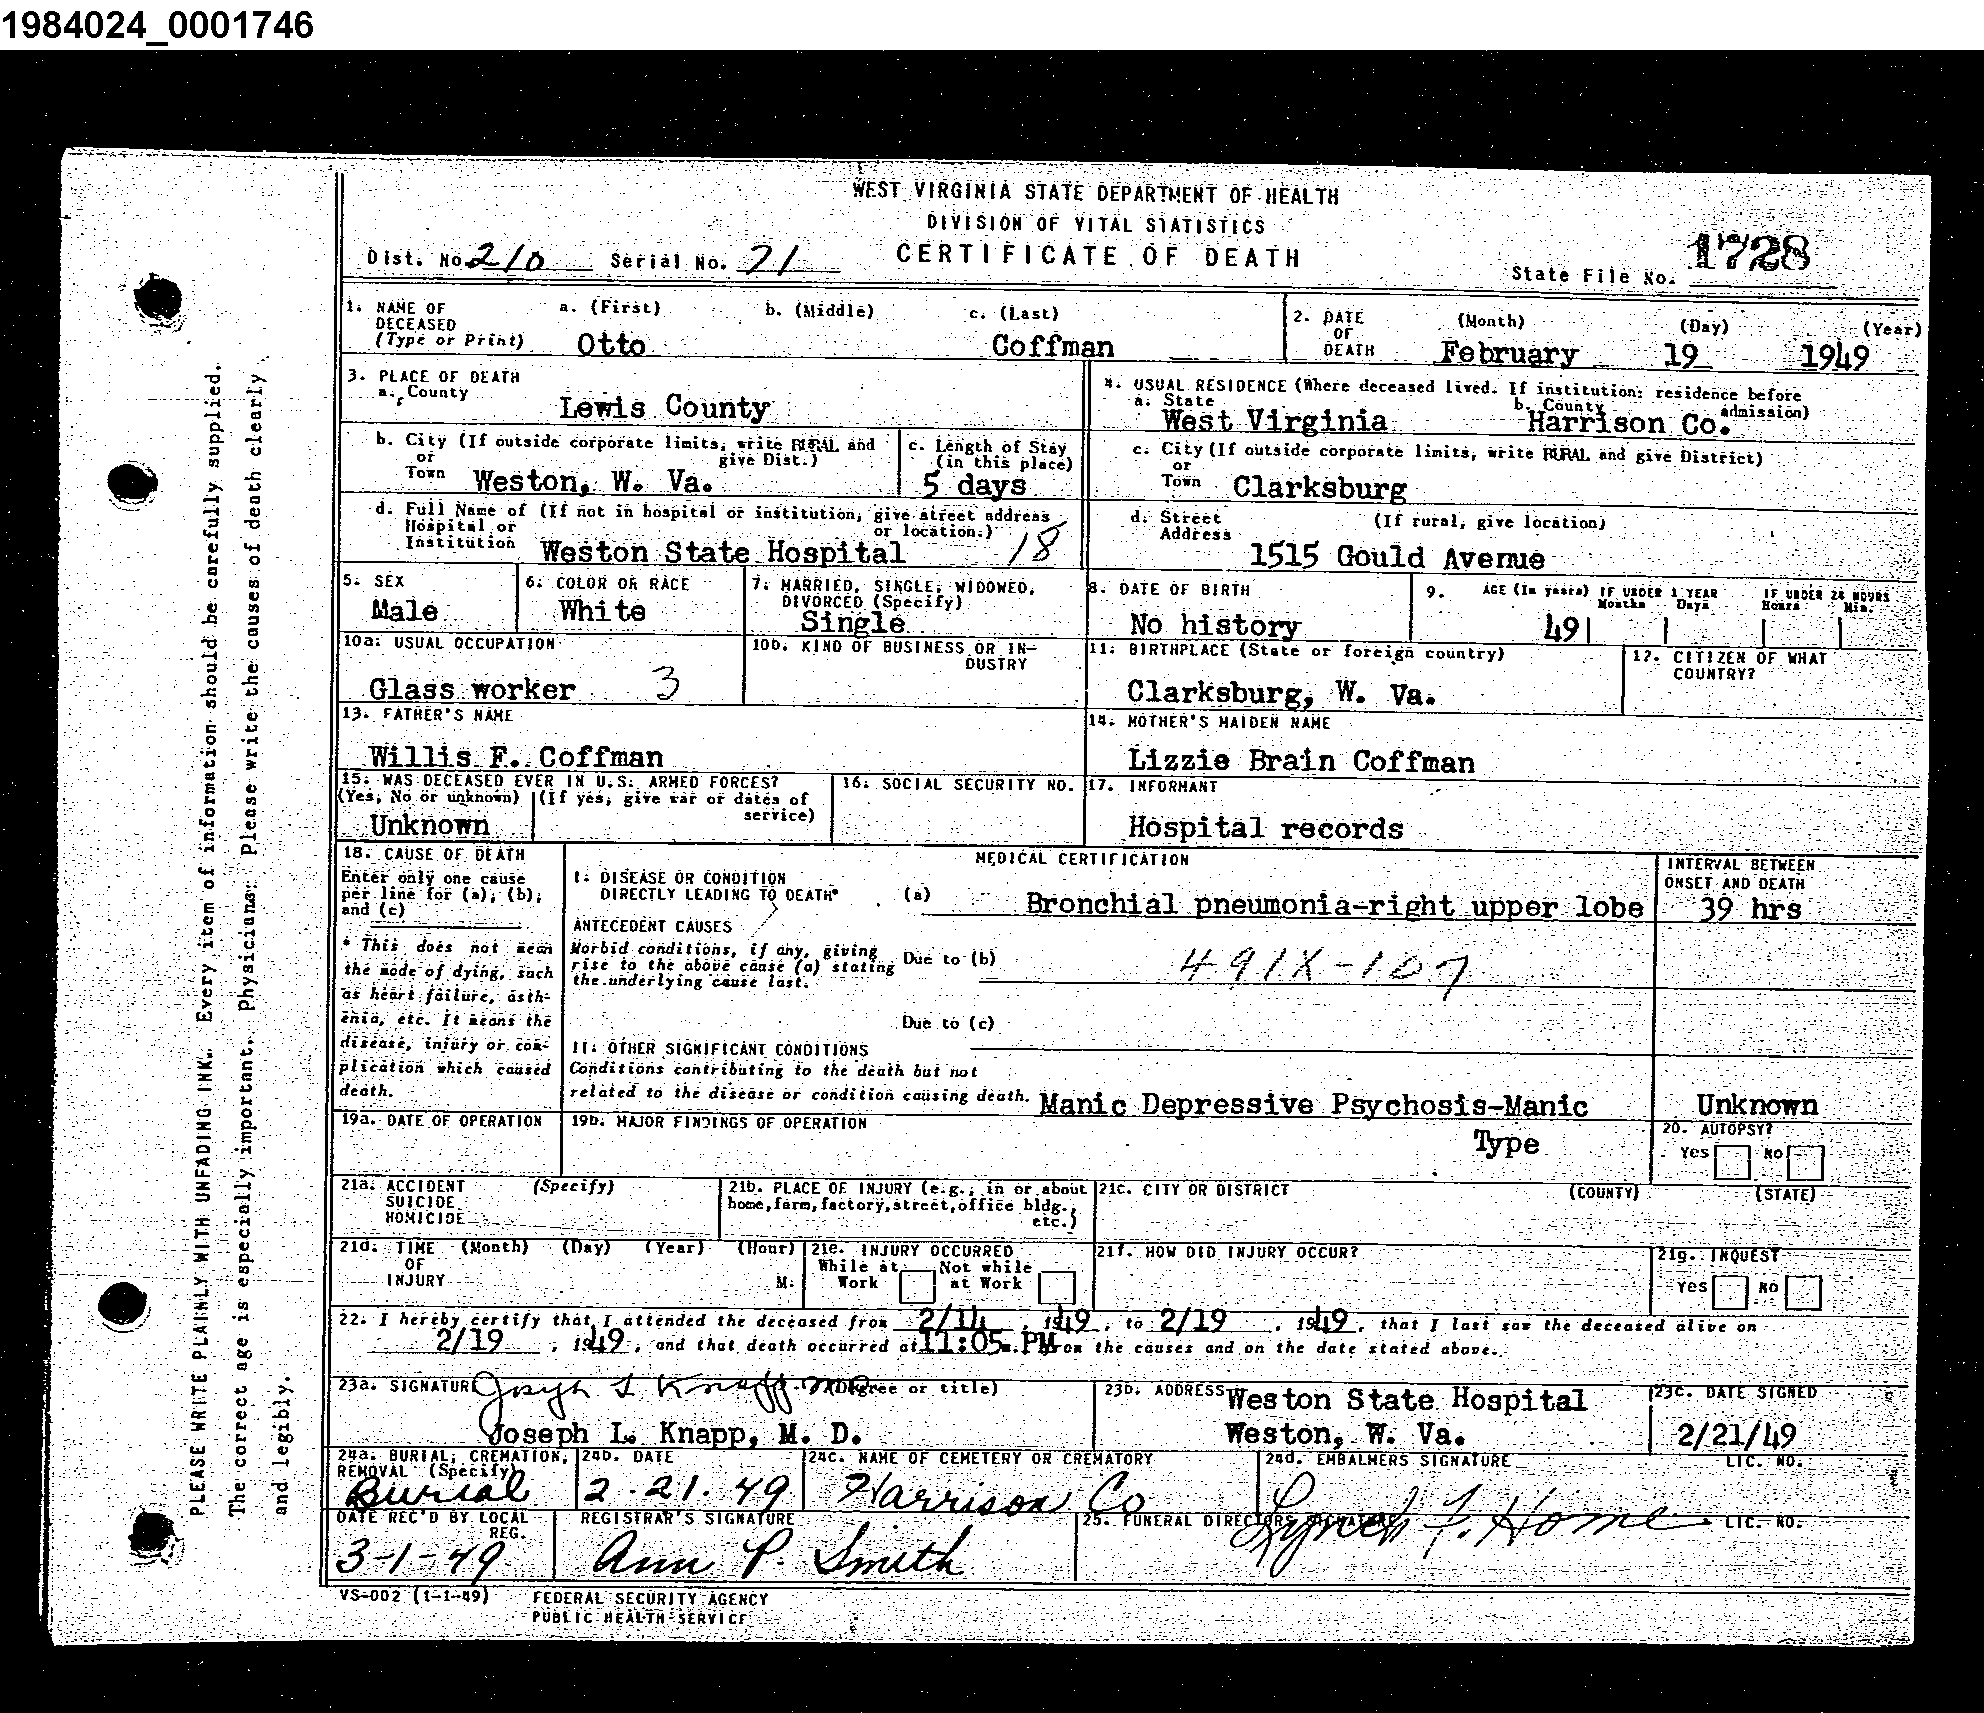 1984024_0001746
WEST VIRGINIA STATE DEPARTMENT OF HEALTH
DIVISION OF VITAL STATISTICS
CERTIFICATE OF DEATH
Dist. No. 210 Serial No. 71
State File No. 1728
1. NAME OF DECEASED (Type or Print) a. (First) b. (Middle) c. (Last)
Otto Coffman
2. DATE OF DEATH (Month) (Day) (Year)
February 19 1949
3. PLACE OF DEATH
a. County
Lewis County
4. USUAL RESIDENCE (Where deceased lived. If institution: residence before admission)
a. State b. County
West Virginia Harrison Co.
b. City (If outside corporate limits, write RURAL and give Dist.)
or Town Weston, W. Va.
c. Length of Stay (in this place)
5 days
c. City (If outside corporate limits, write RURAL and give District)
or Town Clarksburg
d. Full Name of (If not in hospital or institution, give street address or location.)
Hospital or Institution Weston State Hospital 18
d. Street Address (If rural, give location)
1515 Gould Avenue
5. SEX
Male
6. COLOR OR RACE
White
7. MARRIED, SINGLE, WIDOWED, DIVORCED (Specify)
Single
8. DATE OF BIRTH
No history
9. AGE (In years) IF UNDER 1 YEAR Months Days IF UNDER 24 HOURS Hours Min.
49
10a. USUAL OCCUPATION
Glass worker 3
10b. KIND OF BUSINESS OR INDUSTRY
11. BIRTHPLACE (State or foreign country)
Clarksburg, W. Va.
12. CITIZEN OF WHAT COUNTRY?
13. FATHER'S NAME
Willis F. Coffman
14. MOTHER'S MAIDEN NAME
Lizzie Brain Coffman
15. WAS DECEASED EVER IN U.S. ARMED FORCES?
(Yes, No or unknown) (If yes, give war or dates of service)
Unknown
16. SOCIAL SECURITY NO.
17. INFORMANT
Hospital records
18. CAUSE OF DEATH
Enter only one cause per line for (a), (b), and (c)
* This does not mean the mode of dying, such as heart failure, asthenia, etc. It means the disease, injury or complication which caused death.
MEDICAL CERTIFICATION
I. DISEASE OR CONDITION DIRECTLY LEADING TO DEATH* (a)
Bronchial pneumonia-right upper lobe
INTERVAL BETWEEN ONSET AND DEATH
39 hrs
ANTECEDENT CAUSES
Morbid conditions, if any, giving rise to the above cause (a) stating the underlying cause last.
Due to (b)
491X-107
Due to (c)
II. OTHER SIGNIFICANT CONDITIONS
Conditions contributing to the death but not related to the disease or condition causing death.
Manic Depressive Psychosis-Manic Type
Unknown
19a. DATE OF OPERATION
19b. MAJOR FINDINGS OF OPERATION
20. AUTOPSY?
Yes No
21a. ACCIDENT SUICIDE HOMICIDE (Specify)
21b. PLACE OF INJURY (e.g., in or about home, farm, factory, street, office bldg., etc.)
21c. CITY OR DISTRICT (COUNTY) (STATE)
21d. TIME OF INJURY (Month) (Day) (Year) (Hour) M.
21e. INJURY OCCURRED
While at Work Not while at Work
21f. HOW DID INJURY OCCUR?
21g. INQUEST
Yes No
22. I hereby certify that I attended the deceased from 2/14, 1949, to 2/19, 1949, that I last saw the deceased alive on
2/19, 1949, and that death occurred at 11:05 PM from the causes and on the date stated above.
23a. SIGNATURE Joseph L Knapp MD (Degree or title)
Joseph L. Knapp, M. D.
23b. ADDRESS Weston State Hospital
Weston, W. Va.
23c. DATE SIGNED
2/21/49
24a. BURIAL, CREMATION, REMOVAL (Specify)
Burial
24b. DATE
2-21-49
24c. NAME OF CEMETERY OR CREMATORY
Harrison Co
24d. EMBALMERS SIGNATURE LIC. NO.
DATE REC'D BY LOCAL REG.
3-1-49
REGISTRAR'S SIGNATURE
Ann P. Smith
25. FUNERAL DIRECTORS SIGNATURE LIC. NO.
Lynch F. Home
VS-002 (1-1-49) FEDERAL SECURITY AGENCY
PUBLIC HEALTH SERVICE
PLEASE WRITE PLAINLY WITH UNFADING INK. Every item of information should be carefully supplied.
The correct age is especially important. Physicians: please write the causes of death clearly
and legibly.